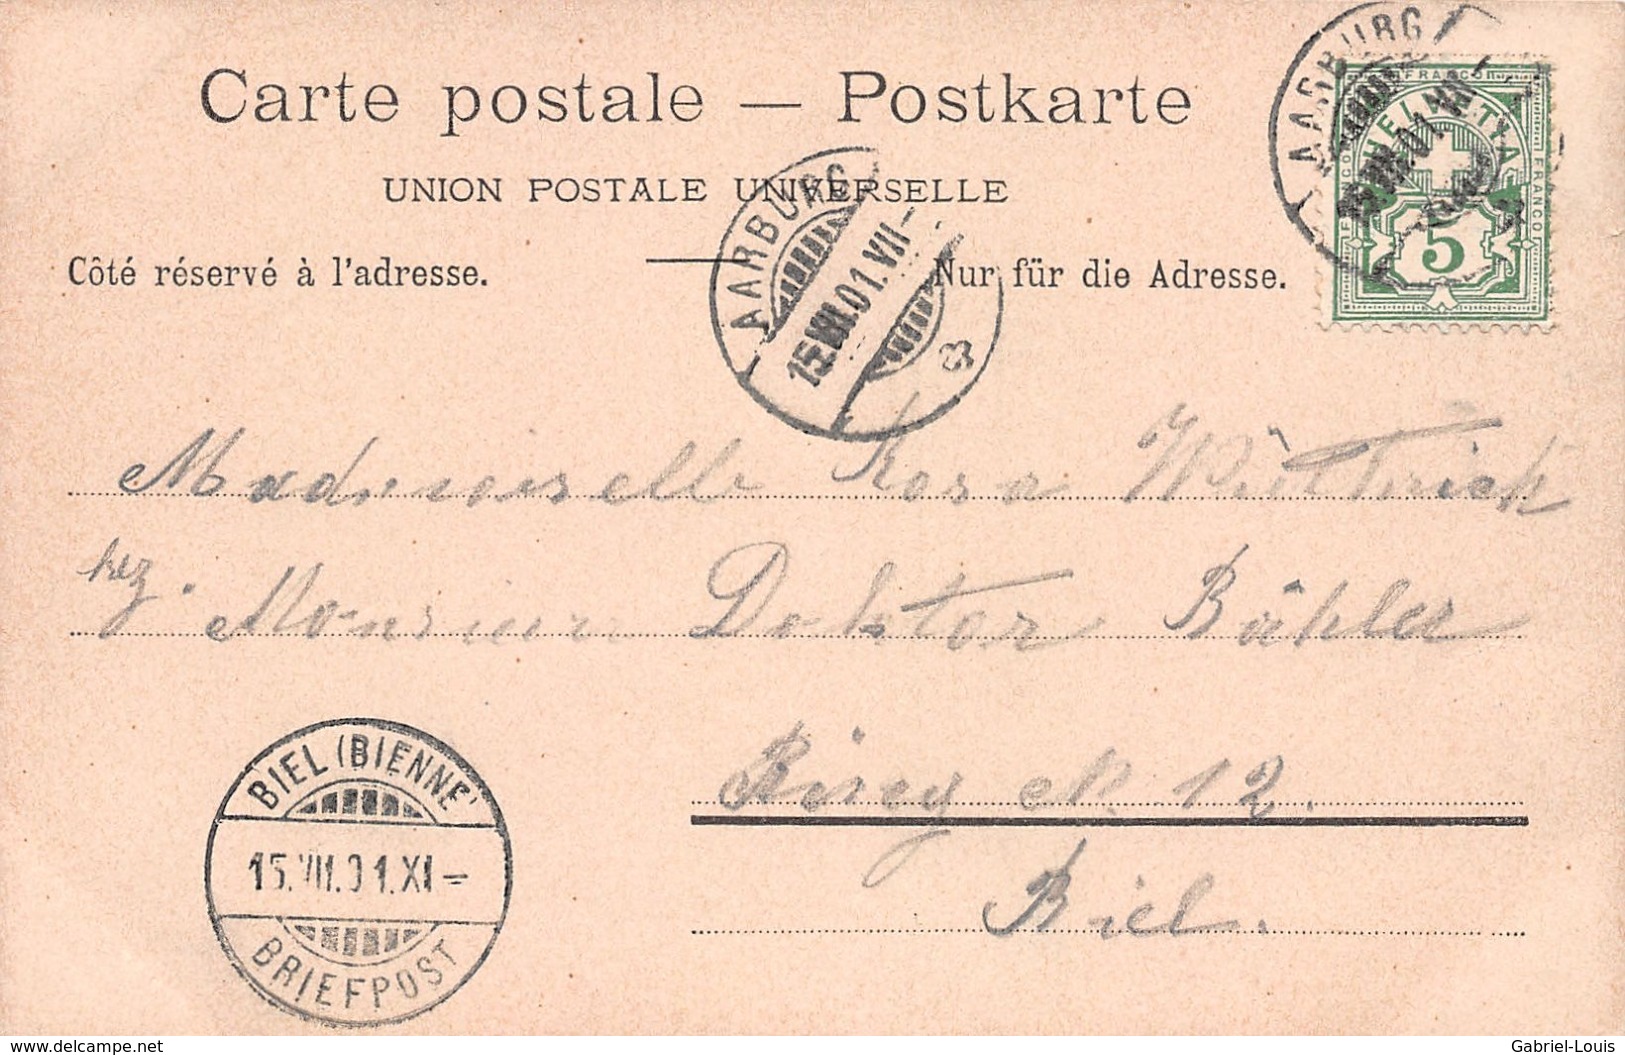 Carte postale — Postkarte
UNION POSTALE UNIVERSELLE
Côté réservé à l'adresse. Nur für die Adresse.
AARBURG
15.VII.01.VII-
AARBURG
15.VII.01.VII-
FRANCO
HELVETIA
FRANCO
5
Mademoiselle Rosa Wüttrich
chez. Monsieur Doktor Bähler
Ring No. 12.
Biel.
BIEL (BIENNE)
15.VII.01.XI-
BRIEFPOST
delcampe.net
Gabriel-Louis